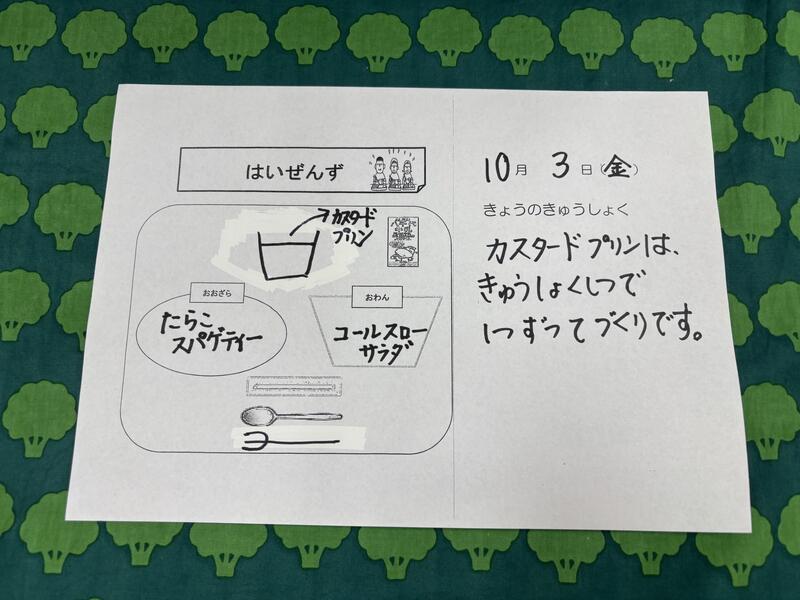 はいぜんず
カスタード
プリン
おおざら
たらこ
スパゲティー
おわん
コールスロー
サラダ
10月 3日(金)
きょうのきゅうしょく
カスタードプリンは、
きゅうしょくしつで
1つずつてづくりです。